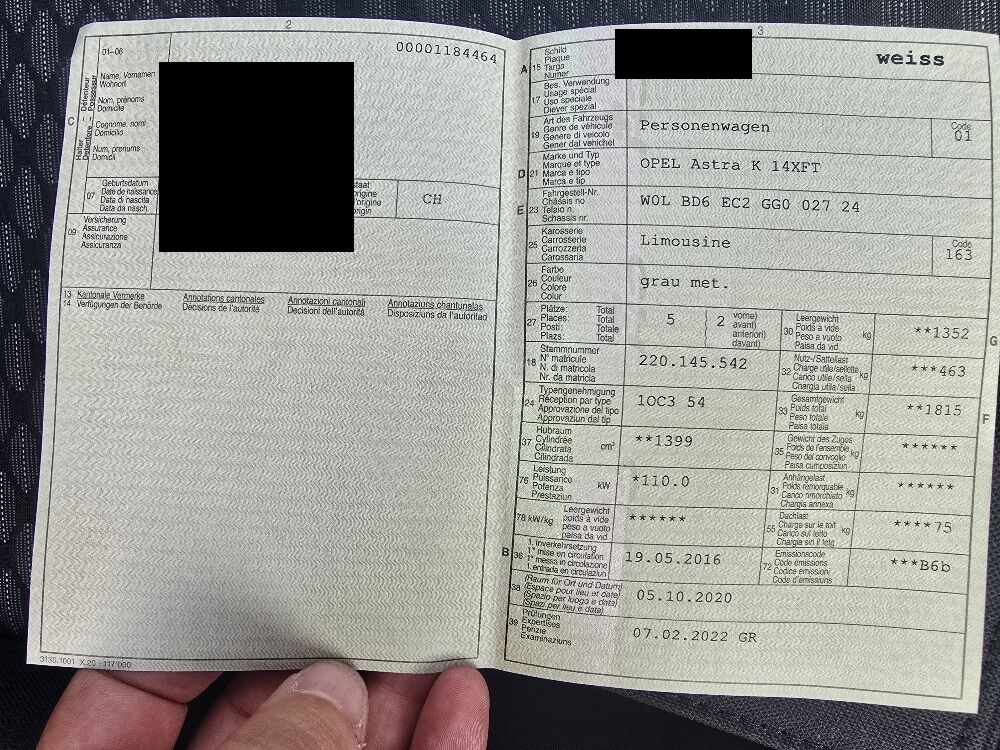 2
00001184464
01–06
Name, Vornamen
Wohnort
Nom, prénoms
Domicile
Cognome, nomi
Domicilio
Num, prenums
Domicil
C
Halter – Détenteur
Detentore – Possessur
07
Geburtsdatum
Date de naissance
Data di nascita
Data da nasch.
staat
origine
origine
origin
CH
09
Versicherung
Assurance
Assicurazione
Assicuranza
13
14
Kantonale Vermerke
Verfügungen der Behörde
Annotations cantonales
Décisions de l'autorité
Annotazioni cantonali
Decisioni dell'autorità
Annotaziuns chantunalas
Disposiziuns da l'autoritad
3130.1001 X.20 - 117'000
3
A 15
Schild
Plaque
Targa
Numer
weiss
17
Bes. Verwendung
Usage spécial
Uso speciale
Diever spezial
19
Art des Fahrzeugs
Genre de véhicule
Genere di veicolo
Gener dal vehichel
Personenwagen
Code
01
D 21
Marke und Typ
Marque et type
Marca e tipo
Marca e tip
OPEL Astra K 14XFT
E 23
Fahrgestell-Nr.
Châssis no
Telaio n.
Schassis nr.
W0L BD6 EC2 GG0 027 24
25
Karosserie
Carrosserie
Carrozzeria
Carossaria
Limousine
Code
163
26
Farbe
Couleur
Colore
Colur
grau met.
27
Plätze: Total
Places: Total
Posti: Totale
Plazs: Total
5
2
vorne)
avant)
anteriori)
davant)
30
Leergewicht
Poids à vide
Peso a vuoto
Paisa da vid
kg
**1352
G
18
Stammnummer
N° matricule
N. di matricola
Nr. da matricla
220.145.542
32
Nutz-/Sattellast
Charge utile/sellette
Carico utile/sella
Chargia utila/sella
kg
***463
24
Typengenehmigung
Réception par type
Approvazione del tipo
Approvaziun dal tip
1OC3 54
33
Gesamtgewicht
Poids total
Peso totale
Paisa totala
kg
**1815
F
37
Hubraum
Cylindrée
Cilindrata
Cilindrada
cm³
**1399
35
Gewicht des Zuges
Poids de l'ensemble
Peso del convoglio
Paisa cumposiziun
kg
******
76
Leistung
Puissance
Potenza
Prestaziun
kW
*110.0
31
Anhängelast
Poids remorquable
Carico rimorchiato
Chargia annexa
kg
******
78 kW/kg
Leergewicht
poids à vide
peso a vuoto
paisa da vid
******
55
Dachlast
Charge sur le toit
Carico sul tetto
Chargia sin il tetg
kg
****75
B 36
1. Inverkehrsetzung
1re mise en circulation
1a messa in circolazione
1. entrada en circulaziun
19.05.2016
72
Emissionscode
Code émissions
Codice emissioni
Code d'emissiuns
***B6b
38
(Raum für Ort und Datum)
(Espace pour lieu et date)
(Spazio per luogo e data)
(Spazi per lieu e data)
05.10.2020
39
Prüfungen
Expertises
Perizie
Examinaziuns
07.02.2022 GR